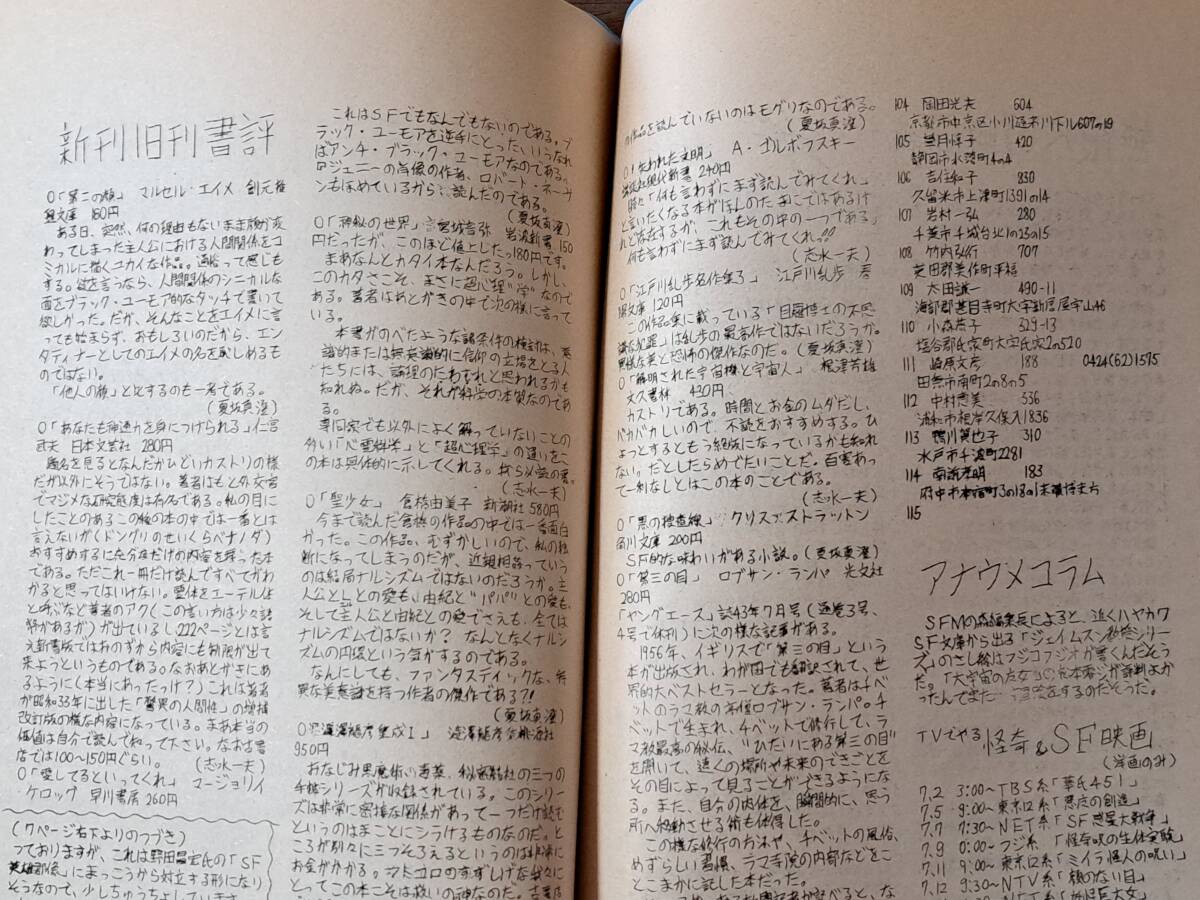 新刊旧刊書評
○「第二の顔」 マルセル・エイメ 創元推
理文庫 180円
ある日、突然、何の理由もないまま顔が変
わってしまった主人公における人間関係をコ
ミカルに描くユカイな作品。通俗って感じも
する。欲を言うなら、人間関係のシニカルな
面をブラック・ユーモア的なタッチで書いて
欲しかった。だが、そんなことをエイメに言
っても始まらず、おもしろいのだから、エン
タティナーとしてのエイメの名を恥しめるも
のではない。
「他人の顔」と比するのも一考である。
(夏坂真澄)
○「あなたも神通力を身につけられる」仁宮
武夫 日本文芸社 280円
題名を見るとなんだかひどいカストリの様
だが以外にそうではない。著者はもと外交官
でマジメな研究態度は有名である。私の目に
したことのあるこの種の本の中では一番とは
言えないが(ドングリのせいくらべナノダ)
おすすめするに充分なだけの内容を持った本
である。ただこれ一冊だけ読んですべてがわ
かると思ってはいけない。霊体をエーテル体
と呼ぶなど著者のアク(この言い方は少々語
弊があるが)が出ているし、222ページとは言
え新書版ではおのずから内容にも制限が出て
来ようというものである。なおあとがきにあ
るように(本当にあったっけ?)これは著者
が昭和33年に出した「驚異の人間性」の増補
改訂版の様な内容になっている。まあ本当の
価値は自分で読んで知って下さい。なお古書
店では100〜150円ぐらい。 (志水一夫)
○「愛してるといってくれ」 マージョリイ
・ケロッグ 早川書房 260円
(7ページ右下よりのつづき)
っておりますが、これは野田昌宏氏の「SF
英雄群像」にまっこうから対立する形になり
そうなので、少しちゅうちょしています。
これはSFでもなんでもないのである。ブ
ラック・ユーモアを逆手にとった、いうなれ
ばアンチ・ブラック・ユーモアなのである。
白ジェニーの肖像の作者、ロバート・ネーサ
ンもほめているから、読んだのである。
(夏坂真澄)
○「神秘の世界」 宮城音弥 岩波新書 150
円だったが、このほど値上した。180円です。
まあなんとカタイ本なんだろう。しかし、
このカタさこそ、まさに超心理"学"なので
ある。著者はあとがきの中で次の様に言って
いる。
本書がのべたような諸条件の検討は、意
識的または無意識的に信仰の立場をとる人
たちには、論理のたわむれと思われるかも
知れぬ。だが、それが科学の本質なのであ
る。
専門家でも以外によく解っていないことの
多い「心霊科学」と「超心理学」の違いをこ
の本は具体的に示してくれる。
(志水一夫)
○「聖少女」 倉橋由美子 新潮社 580円
今まで読んだ倉橋の作品の中では一番面白
かった。この作品、むずかしいので、私の独
断になってしまうのだが、近親相姦っていう
のは結局ナルシズムではないのだろうか。主
人公とLとの愛も、由紀と"パパ"との愛も、
そして主人公と由紀との愛でさえも、全ては
ナルシズムではないか? なんとなくナルシ
ズムの円環という気がするのである。
なんにしても、ファンタスティックな、特
異な美意識を持つ作者の傑作である?!
(夏坂真澄)
○「澁澤龍彦集成Ⅰ」 澁澤龍彦 桃源社
950円
おなじみ黒魔術、毒薬、秘密結社の三つの
手帖シリーズが収録されている。このシリー
ズは非常に密接な関係があって一つだけ読で
というのはまことにシラけるものなのだ。と
ころが別々に三つそろえるというのは非常に
お金がかかる。フトコロのすずしげな我々に
とってこの本こそは救いの神なのだ。
の作品を読んでいないのはモグリなのである。
(夏坂真澄)
○「失われた文明」 A・ゴルボフスキー
講談社現代新書 240円
時々「何も言わずにまず読んでみてくれ」
と言いたくなる本がほんのたまにではあるけ
れど存在するが、これもその中の一つである
何も言わずにまず読んでみてくれ!!
(志水一夫)
○「江戸川乱歩名作集7」 江戸川乱歩 春
陽文庫 120円
この作品集に載っている「目羅博士の不思
議な犯罪」は乱歩の最高作ではないだろうか。
異様な美と恐怖の傑作なのだ。(夏坂真澄)
○「解明された宇宙機と宇宙人」 根津芳雄
文久書林 430円
カストリである。時間とお金のムダだし、
バカバカしいので、不読をおすすめする。ひ
ょっとするともう絶版になっているかも知れ
ない。だとしたらめでたいことだ。百害あっ
て一利なしとはこの本のことである。
(志水一夫)
○「悪の検査線」 クリス・ストラットン
角川文庫 200円
SF的な味わいがある小説。(夏坂真澄)
○「第三の目」 ロブサン・ランパ 光文社
280円
「ヤングエース」誌43年7月号(通巻3号、
4号で休刊)に次の様な記事がある。
1956年、イギリスで「第三の目」という
本が出版され、わが国でも翻訳されて、世
界的大ベストセラーとなった。著者はチベ
ットのラマ教の高僧ロブサン・ランパ。チベ
ットで生まれ、チベットで修行して、ラ
マ教最高の秘伝、"ひたいにある第三の目"
を開いて、遠くの場所や未来のできごとを
その目によって見ることができるようにな
る。また、自分の肉体を、瞬間的に、思う
所へ移動させる術も体得した。
この様な修行の方法や、チベットの風俗、
めずらしい習慣、ラマ寺院の内部などをこ
とこまかに試した本だった。
104 岡田光夫 604
京都市中京区小川通木川下ル607の19
105 望月惇子 420
静岡市水落町4の4
106 吉住和子 830
久留米市上津町1391の14
107 岩村一弘 280
千葉市千城台北1の23の15
108 竹内弘術 707
英田郡美作町平福
109 太田誠一 490-11
海部郡甚目寺町大字新居屋字山46
110 小森恭子 329-13
塩谷郡氏家町大字氏家2の510
111 嶋原文彦 188 0424(62)1575
田無市南町2の8の5
112 中村恵美 336
浦和市根岸久保入1836
113 鴨川賀也子 310
水戸市千波町2281
114 183
府中市本宿町3の18の1
115
アナウメコラム
SFMの森編集長によると、近くハヤカワ
SF文庫から出る「ジェイムスン教授シリー
ズ」のさし絵はフジコフジオが書くんだそう
だ。
TVでやる 怪奇&SF映画
(洋画のみ)
7,2 3:00〜TBS系「華氏451」
7,5 9:00〜東京12系「悪夜の創造」
7,7 7:30〜NET系「SF惑星大戦争」
7,9 0:00〜フジ系「怪奇!呪の生体実験」
7,11 9:00〜東京12系「ミイラ怪人の呪い」
7,12 9:30〜NTV系「顔のない目」